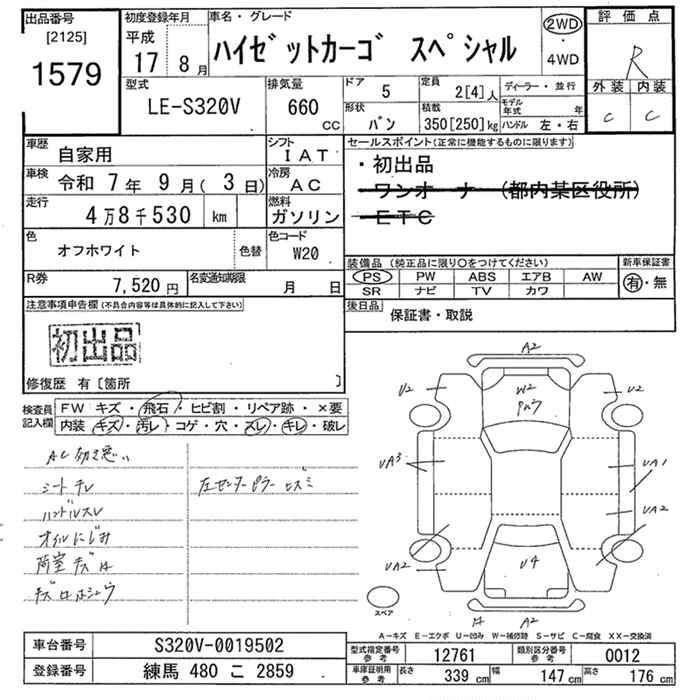 出品番号
[2125]
1579
初度登録年月
平成
17 8月
車名・グレード
ハイゼットカーゴ スペシャル
2WD
・
4WD
評価点
R
外装 内装
C C
型式
LE-S320V
排気量
660
CC
ドア
5
定員
2[4]人
形状
バン
積載
350[250]kg
ディーラー・並行
モデル年式 年
ハンドル 左・右
車歴
自家用
シフト
IAT
車検 令和 7年 9月( 3日)
冷房
AC
走行
4万8千530 km
燃料
ガソリン
色
オフホワイト
色替
色コード
W20
R券
7,520円
名変通知期限
月 日
セールスポイント(正常に機能するものに限ります)
・初出品
・ワンオーナー (都内某区役所)
・ETC
装備品(純正品に限り○をつけてください)
PS PW ABS エアB AW
SR ナビ TV カワ
新車保証書
有・無
後日品
保証書・取説
注意事項申告欄(不具合内容等は具体的に記入して下さい)
初出品
修復歴 有〔箇所 〕
検査員
記入欄
FW キズ・飛石・ヒビ割・リペア跡・×要
内装 キズ・汚レ・コゲ・穴・スレ・キレ・破レ
AC 効き悪い
ハンドルスレ
オイルにじみ
荷室キズ
左センターピラーヒズミ
A2
U2
W2
U2
UA3
UA1
UA2
UA2
U4
A2
スペア
A-キズ E-エクボ U-凹み W-補修跡 S-サビ C-腐食 XX-交換済
車台番号
S320V-0019502
登録番号
練馬 480 こ 2859
型式指定番号
参考
12761
類別区分番号
参考
0012
車庫証明用
参考
長さ
339 cm
幅
147 cm
高さ
176 cm